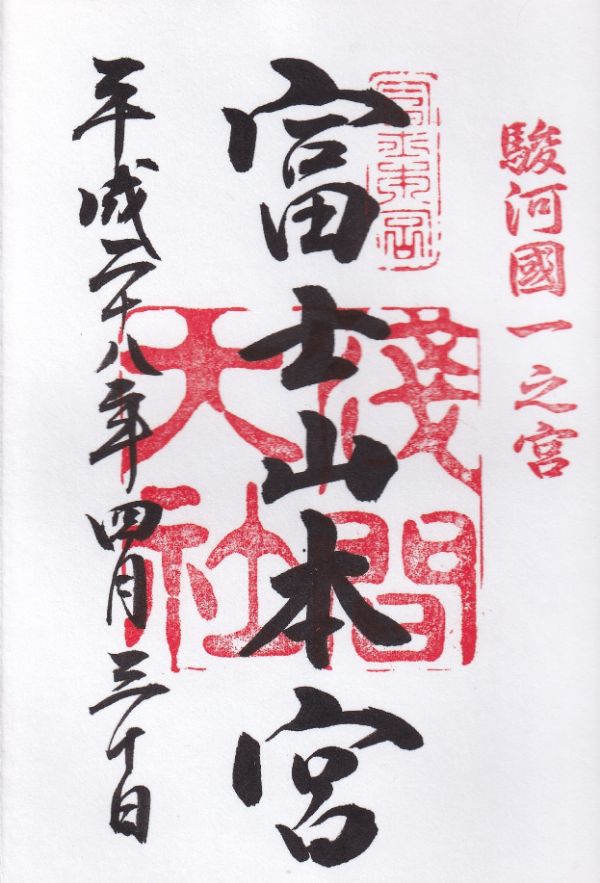 駿河國一之宮
富士山本宮
淺間
大社
平成二十八年四月三十日